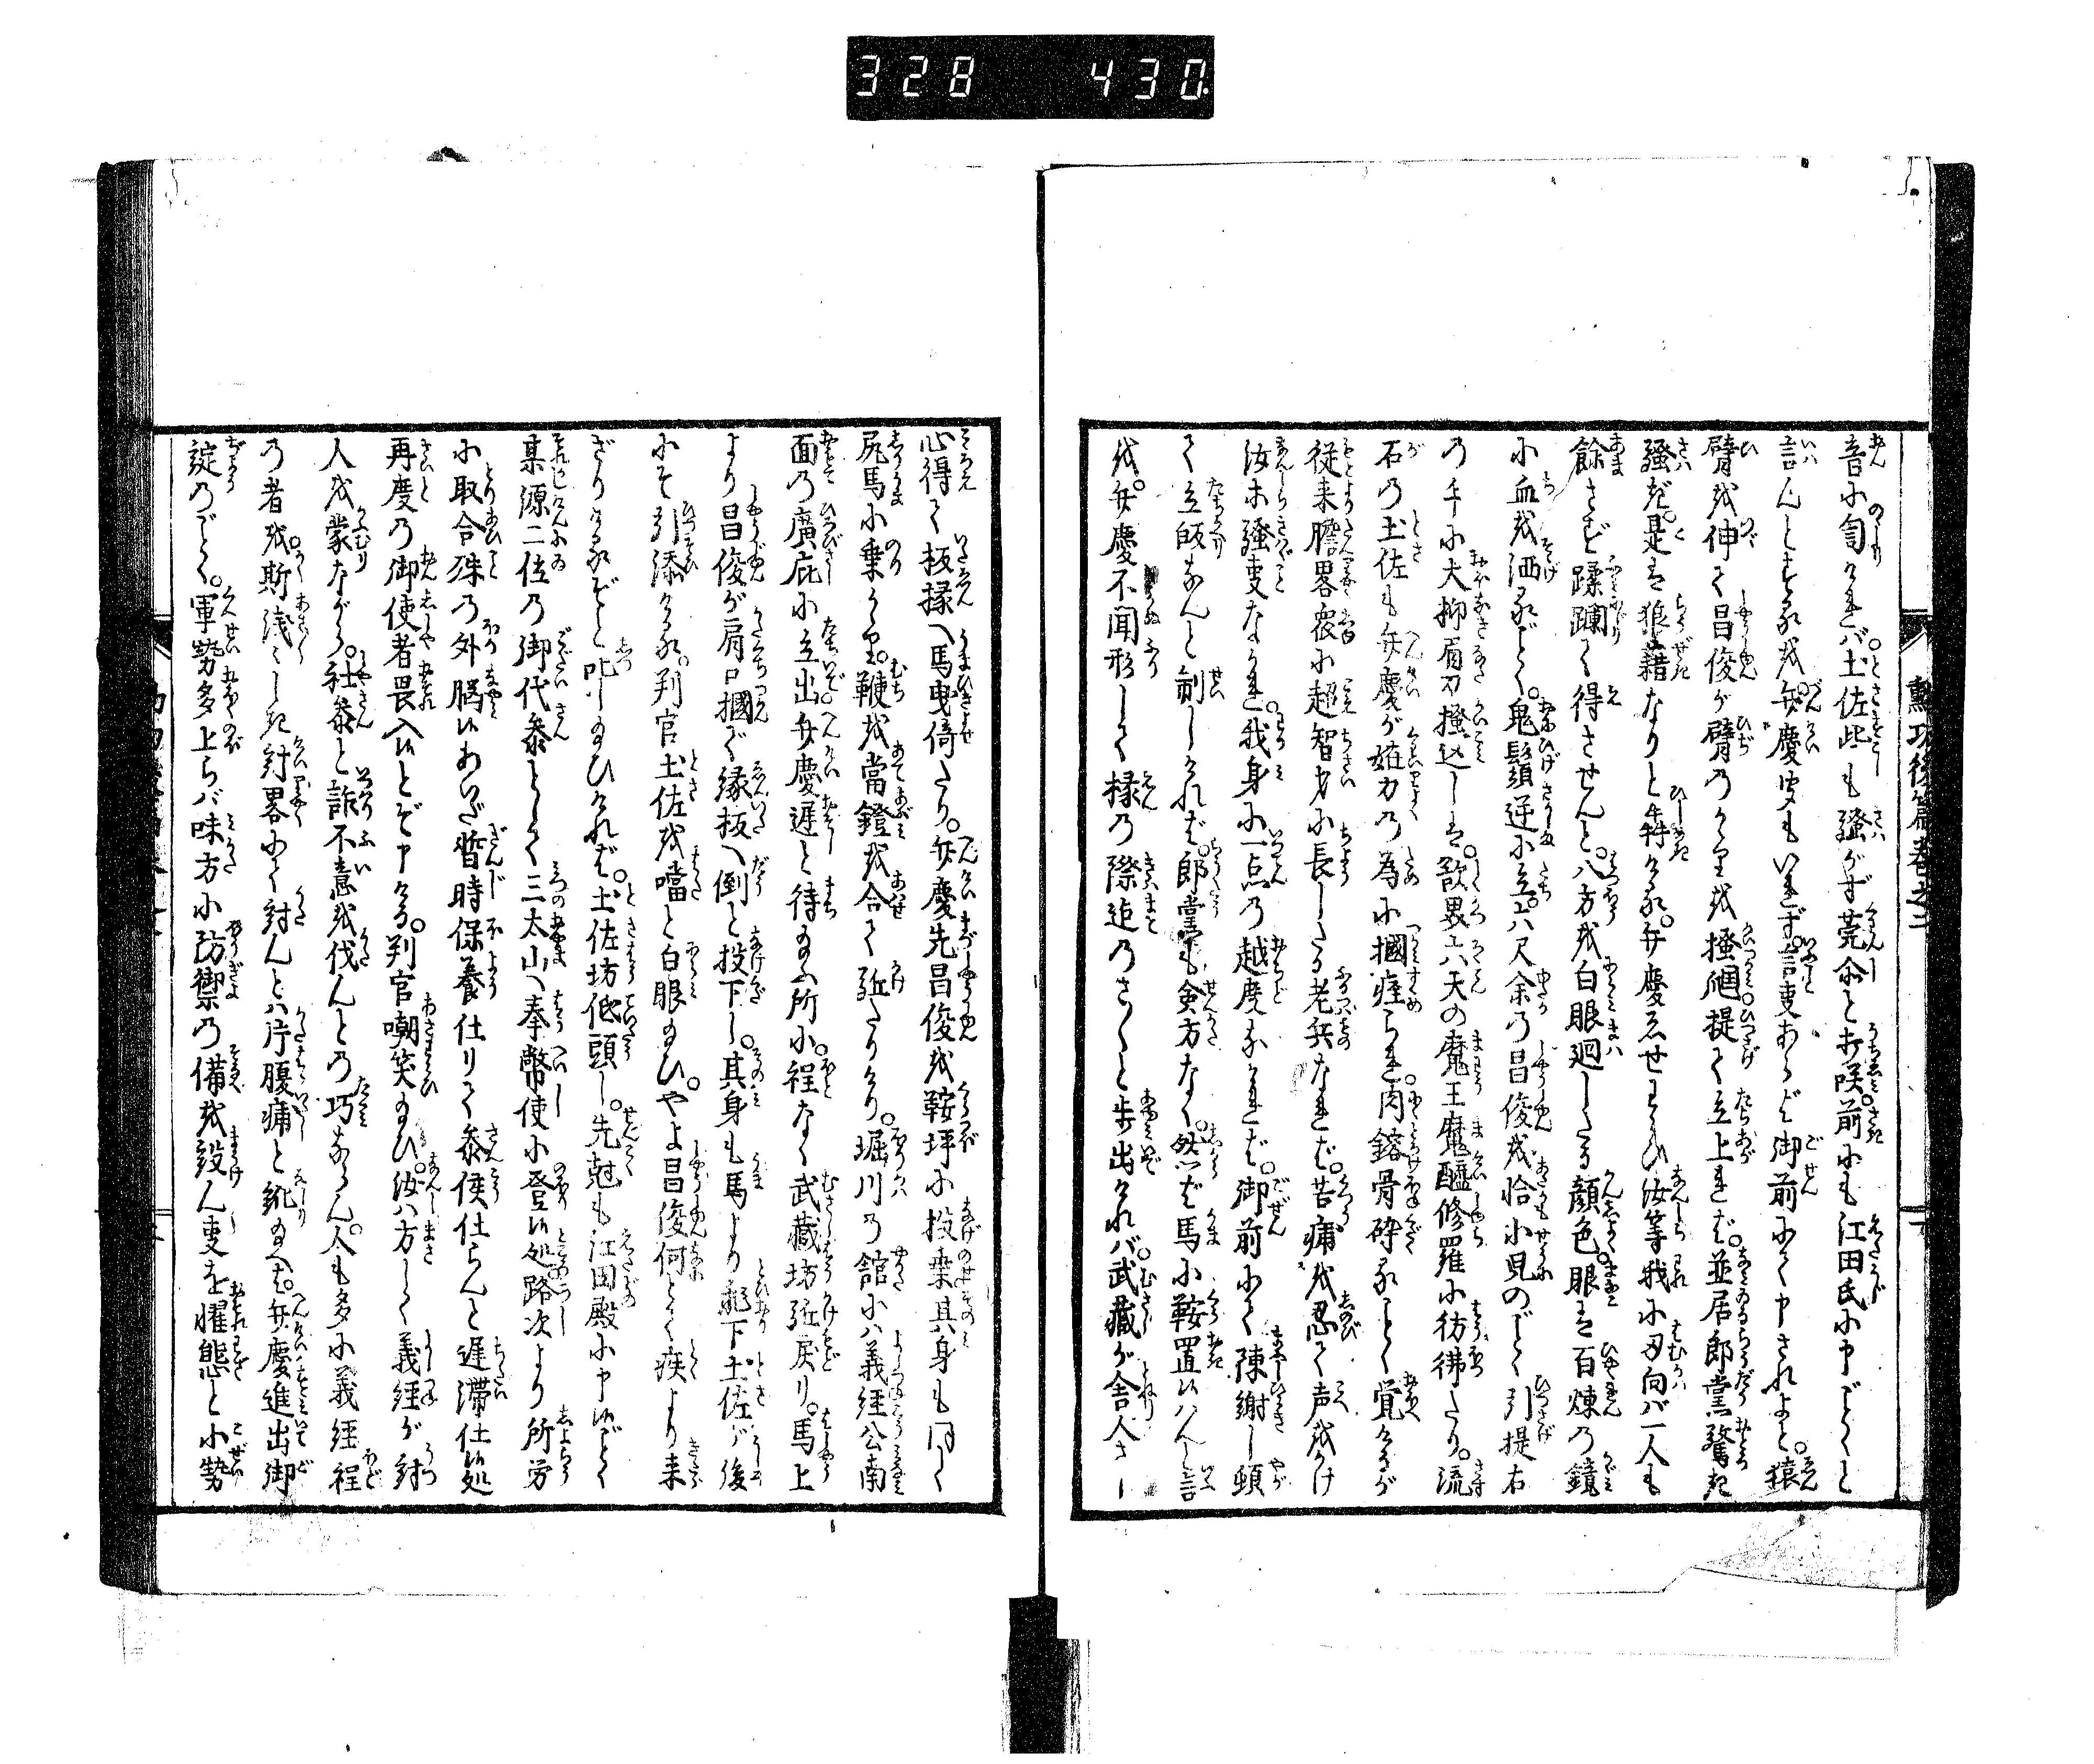 328 430
勲功後篇巻之二
音に訇れバ。土佐坊も騒がず莞尓と打咲。前にも江田氏に申ごとくと
言んとするを。弁慶耳もいれず。言事あらば御前にて申されよと。猿
臂を伸て昌俊が臂のくりを掻爴。提て立上れば。並居郎党驚起
騒だ。是は狼藉なりと犇ける。弁慶ゑせわらひ汝等我に刃向バ一人も
餘さず蹂躙て得させんと。八方を白眼廻したる顔色。眼は百煉の鏡
に血を洒るごとく。鬼鬚逆に立。六尺余の昌俊を恰小児のごとく引提右
の手に大抑眉刀掻込しは。欲界六天の魔王魔醯修羅に彷彿たり。流
石の土佐も弁慶が強力の為に摑痓られ。肉鎔骨砕るごとく覚けるが
従来膽畧衆に超智才に長したる老兵なれば。苦痛を忍て声をかけ
汝等騒事なかれ。我身に一点の越度なければ。御前にて陳謝し頓
て立皈なんと制しければ。郎党も奐方なく。然らば馬に鞍置候ハんと言
を。弁慶不聞形して椽の際迄のさ〱と歩出けれバ。武蔵が舎人さし
心得て板縁へ馬曳倚たり。弁慶先昌俊を鞍坪に投乗其身も同じく
尻馬に乗けり。鞭を當鐙を合て馳たりけり。堀川の館にハ義経公南
面の廣庇に立出。弁慶遅と待給ふ所に。程なく武藏坊馳戻り。馬上
より昌俊が肩口摑で縁板へ倒と投下し。其身も馬より飛下土佐が後
にそ引添ける。判官土佐を噹と白眼給ひ。やよ昌俊何とて疾より来
ざりけるぞと叱し給ひければ。土佐坊低頭し。先刻も江田殿に申候ごとく
某源二位の御代参として三太山へ奉幣使に登候処路次より所労
に取合殊の外脳候あいだ暫時保養仕りて参候仕らんと遅滞仕候処
再度の御使者畏入候とぞ申ける。判官嘲笑給ひ。汝ハ方しく義経が討
人を蒙ながら。社参と詐不意を伐んとの巧ならん。人も多に義経程
の者を。斯浅〱しき討畧にて討んとハ片腹痛と䚹給へば。弁慶進出御
諚のごとく。軍勢多上らバ味方に防禦の備を設ん事を懼態と小勢